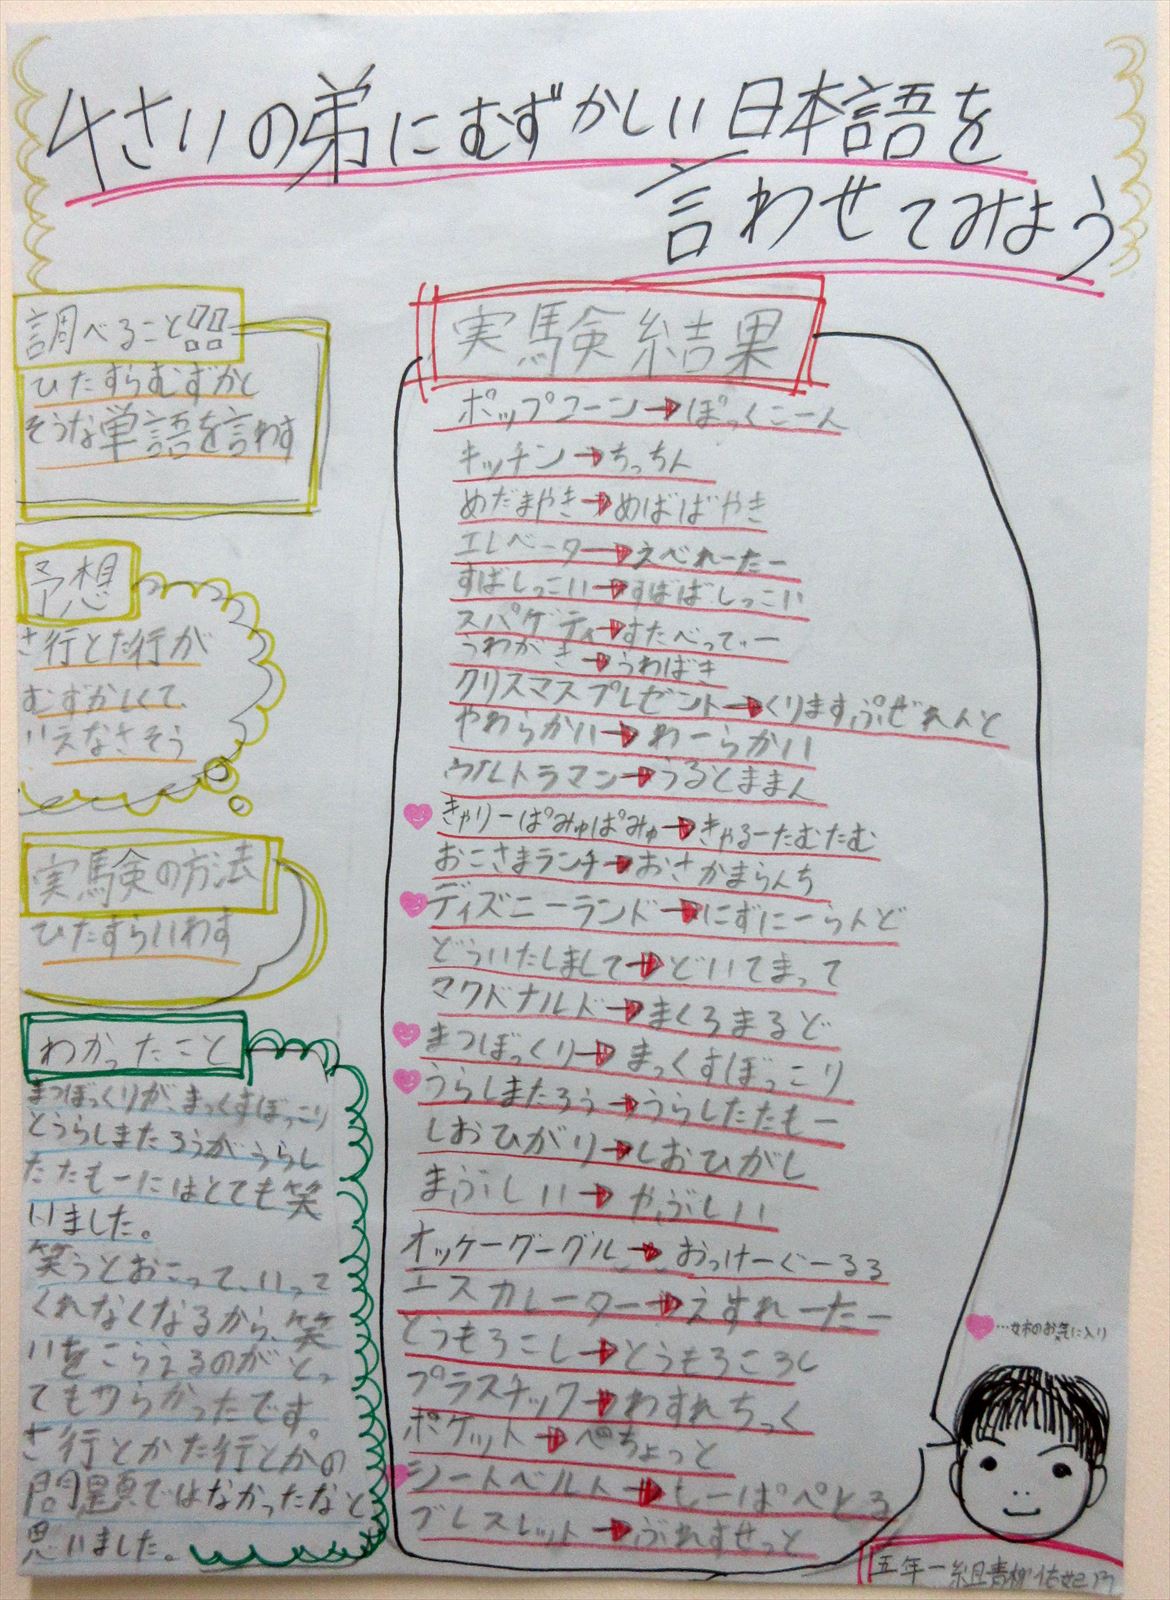 4さいの弟にむずかしい日本語を
言わせてみよう
調べること
ひたすらむずかし
そうな単語を言わす
予想
さ行とた行が
むずかしくて、
いえなさそう
実験の方法
ひたすらいわす
わかったこと
まつぼっくりが、まっくすぼっこり
とうらしまたろうがうらし
たたもーにはとても笑
いました。
笑うとおこって、いって
くれなくなるから、笑
いをこらえるのがとっ
てもつらかったです。
さ行とかた行とかの
問題ではなかったなと
思いました。
実験結果
ポップコーン→ぽっくこーん
キッチン→ちっちん
めだまやき→めばばやき
エレベーター→えべれーたー
すばしっこい→すばばしっこい
スパゲティ→すたべってぃー
うわがき→うわばき
クリスマスプレゼント→くりますぷぜれんと
やわらかい→わーらかい
ウルトラマン→うるとままん
きゃりーぱみゅぱみゅ→きゃるーたむたむ
おこさまランチ→おさかまらんち
ディズニーランド→にずにーらんど
どういたしまして→どいてまって
マクドナルド→まくろまるど
まつぼっくり→まっくすぼっこり
うらしまたろう→うらしたたもー
しおひがり→しおひがし
まぶしい→やぶしい
オッケーグーグル→おっけーぐーるる
エスカレーター→えすれーたー
とうもろこし→とうもろころし
プラスチック→わすれちっく
ポケット→ぺちょっと
シートベルト→しーぱぺとる
ブレスレット→ぶれすせっと
…姉のお気に入り
五年一組青柳